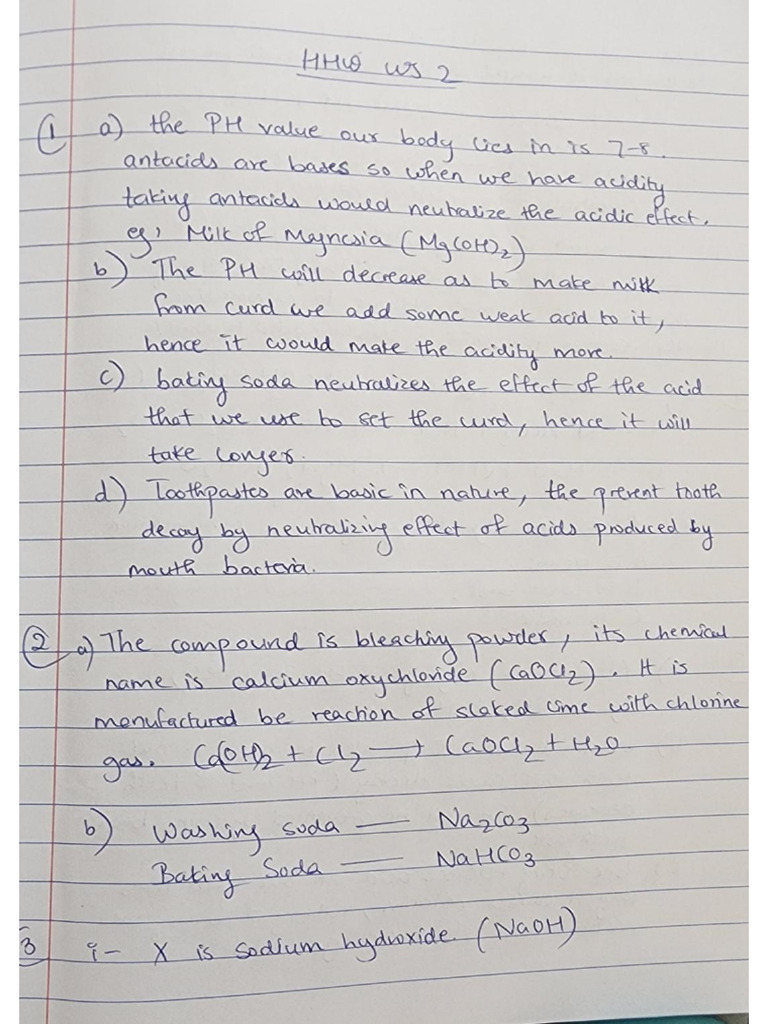 HHW WS 2
① a) the PH value our body lies in is 7-8.
antacids are bases so when we have acidity
taking antacids would neutralize the acidic effect.
eg, Milk of Magnesia (Mg(OH)₂)
b) The PH will decrease as to make milk
from curd we add some weak acid to it,
hence it would make the acidity more.
c) baking soda neutralizes the effect of the acid
that we use to set the curd, hence it will
take longer.
d) Toothpastes are basic in nature, the prevent tooth
decay by neutralizing effect of acids produced by
mouth bacteria.
② a) The compound is bleaching powder, its chemical
name is calcium oxychloride (CaOCl₂). It is
manufactured be reaction of slaked lime with chlorine
gas. Ca(OH)₂ + Cl₂ → CaOCl₂ + H₂O
b) Washing soda — Na₂CO₃
Baking Soda — NaHCO₃
3 i- X is sodium hydroxide. (NaOH)